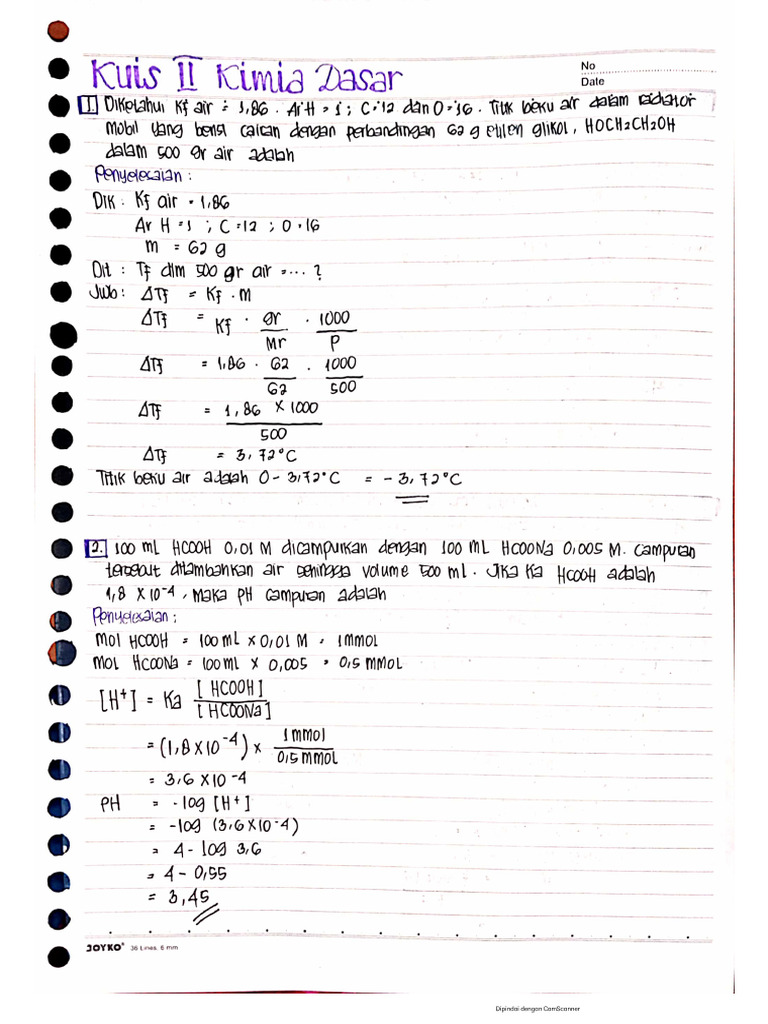 No
Date
Kuis II Kimia Dasar
1. Diketahui Kf air = 1,86. Ar H = 1; C = 12 dan O = 16. Titik beku air dalam radiator
mobil yang berisi cairan dengan perbandingan 62 g etilen glikol, HOCH2CH2OH
dalam 500 gr air adalah
Penyelesaian :
Dik : Kf air = 1,86
Ar H = 1 ; C = 12 ; O = 16
m = 62 g
Dit : Tf dlm 500 gr air = ... ?
Jwb : ΔTf = Kf . m
ΔTf = Kf . gr/Mr . 1000/P
ΔTf = 1,86 . 62/62 . 1000/500
ΔTf = 1,86 × 1000/500
ΔTf = 3,72°C
Titik beku air adalah 0 - 3,72°C = - 3,72°C
2. 100 ml HCOOH 0,01 M dicampurkan dengan 100 mL HCOONa 0,005 M. Campuran
tersebut ditambahkan air sehingga volume 500 ml. Jika Ka HCOOH adalah
1,8 × 10-4, Maka PH campuran adalah
Penyelesaian :
mol HCOOH = 100 mL × 0,01 M = 1 mmol
mol HCOONa = 100 mL × 0,005 = 0,5 mmol
[H+] = Ka [HCOOH]/[HCOONa]
= (1,8 × 10-4) × 1 mmol/0,5 mmol
= 3,6 × 10-4
PH = - log [H+]
= -log (3,6 × 10-4)
= 4 - log 3,6
= 4 - 0,55
= 3,45
JOYKO® 36 Lines, 6 mm
Dipindai dengan CamScanner